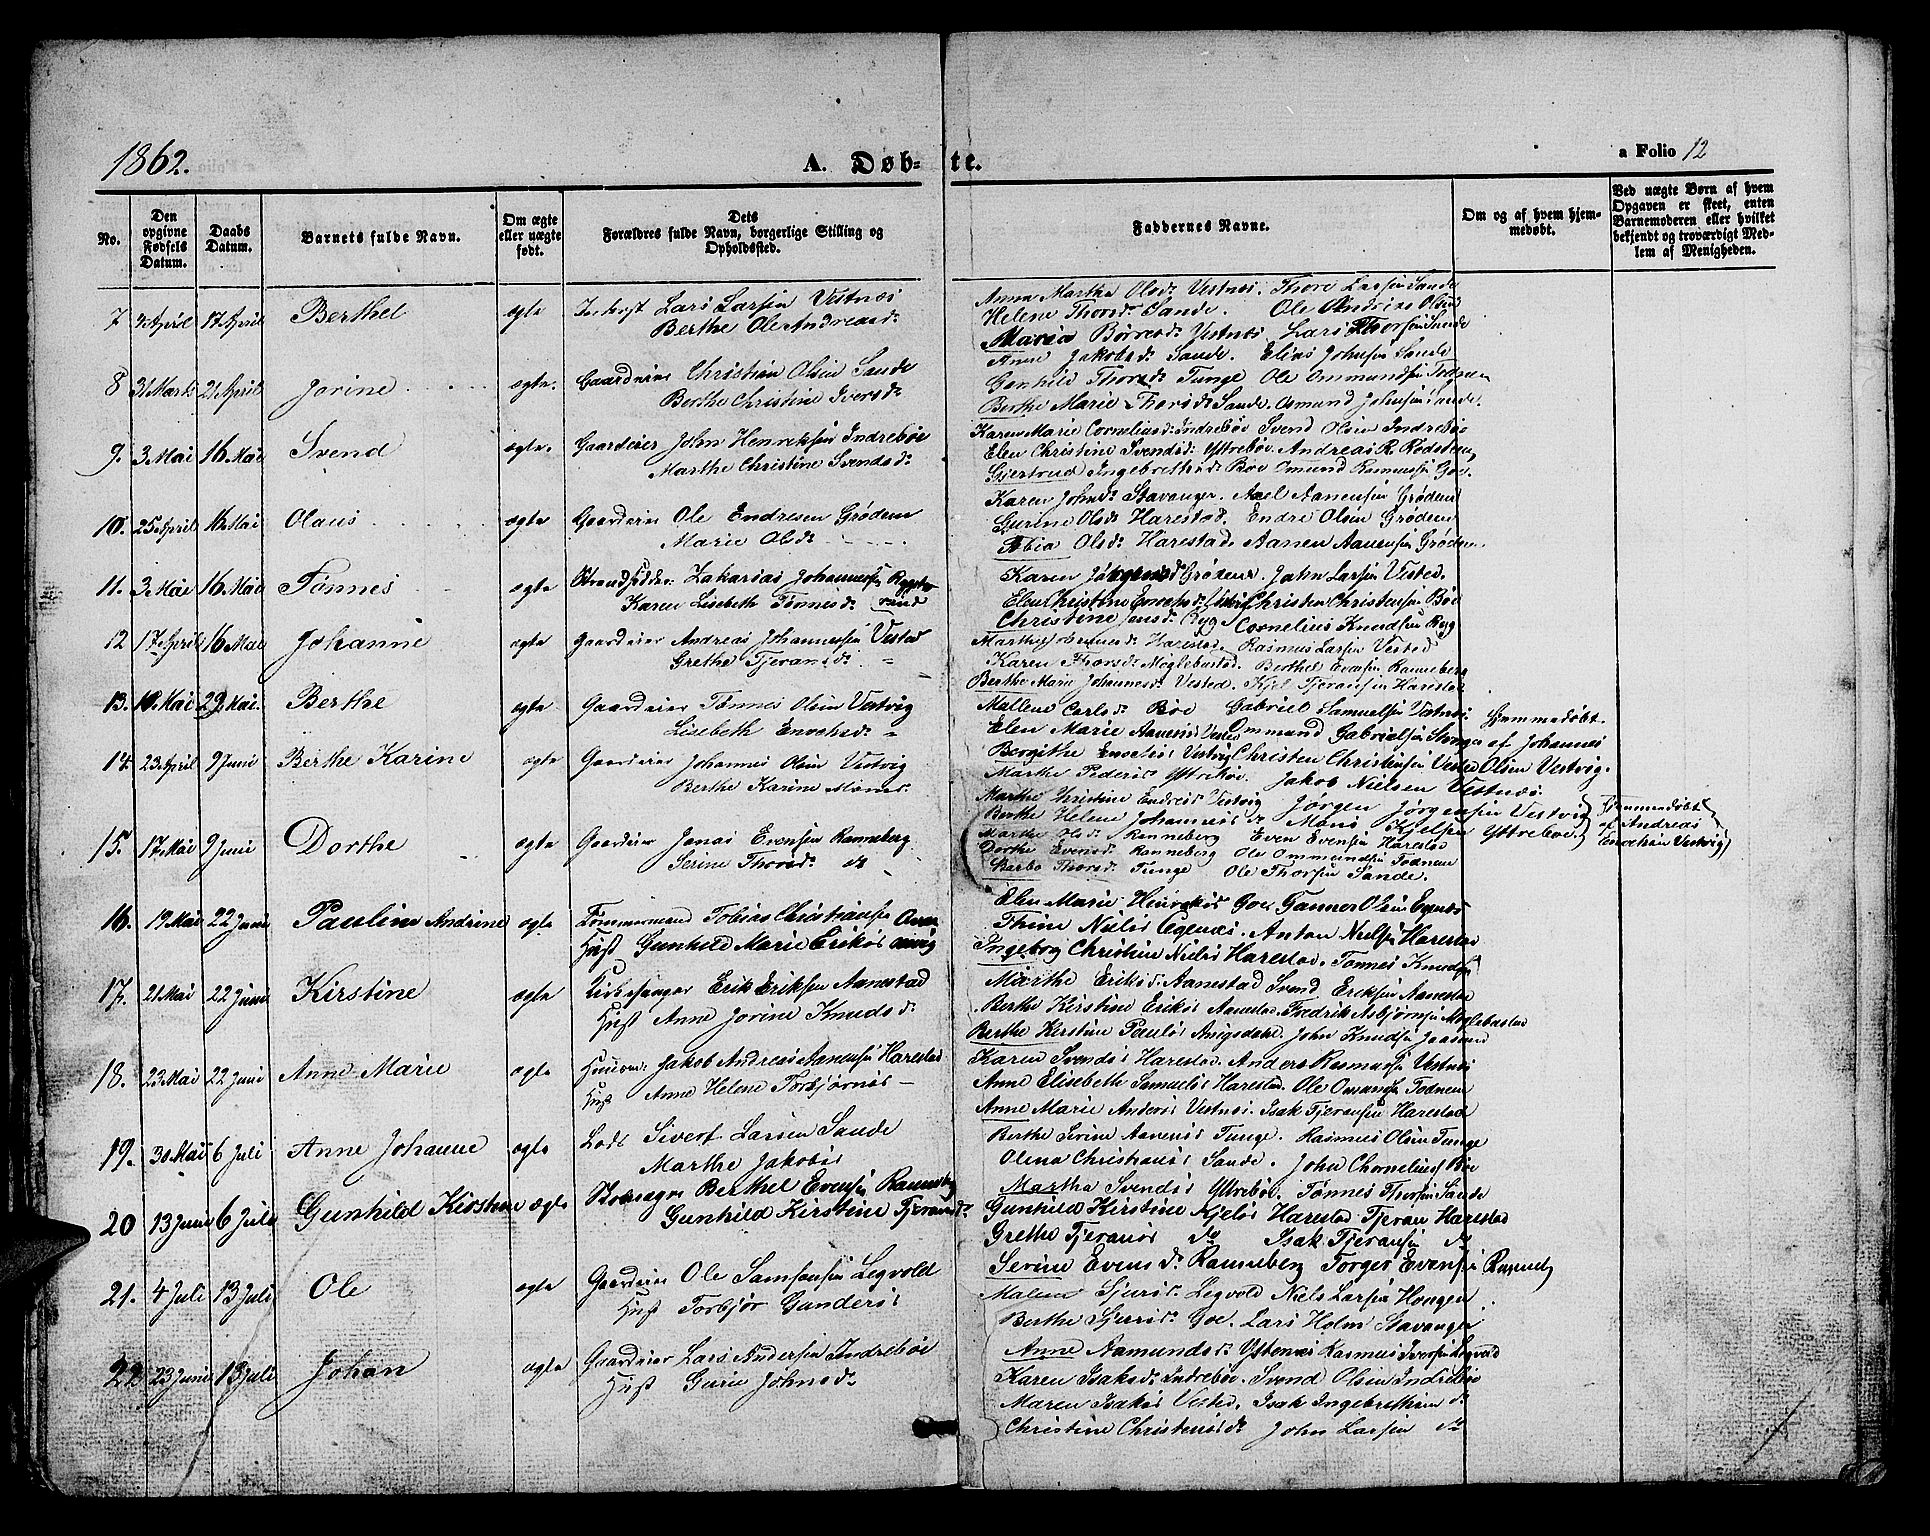 1862.
A. Døb-
te.
a Folio 12
No.
Den opgivne Fødsels Datum.
Daabs Datum.
Barnets fulde Navn.
Om ægte eller uægte født.
Dets Forældres fulde Navn, borgerlige Stilling og Opholdssted.
Faddernes Navne.
Om og af hvem hjemmedøbt.
Ved uægte Børn af hvem Opgaven er skeet, enten Barnemoderen eller hvilket bekjendt og troværdigt Medlem af Menigheden.
7 4 April 17 April Berthel ægte Lars Larsen Vestnes
Berthe Ole Andreasd:
Anna Martha Olsd: Vestnes. Thore Larsen Sande
Helene Thorsd: Sande. Ole Olsnes
Maria Børresd: Vestnes Lars Thorsen Sande
8 31 Marts 21 April Jorine ægte. Gaardeier Christian Olsen Sande
Berthe Christine Iversd:
Anne Jakobsd: Sande. Elias Johnsen Sande
Gunhild Thorsd: Tunge Ole Ommundsen Todnem
Berthe Marie Thorsd: Sande. Osmund Johnsen Sande.
9. 3 Mai 16 Mai Svend ægte. Gaardeier John Henriksen Indrebøe
Marthe Christine Svendsd:
Karen Marie Corneliusd: Indrebøe Svend Olsen Indrebøe
Elen Christine Svendsd: Yttrebøe. Andreas R. Rødsteen
Gjertrud Ingebretsd: Bøe Omund Rasmussen Goe.
10. 25 April 16 Mai Olaus ægte Gaardeier Ole Endresen Grødem
Marie Olsd:
Karen Johnsd: Stavanger. Axel Aanensen Grødem
Gurine Olsd: Harestad. Endre Olsen Grødem
Tobia Olsd: Harestad. Aanen Aanensen Grødem.
11. 3 Mai 16 Mai Tønnes ægte Strandsidder Zakarias Johannessen
Karen Lisebeth Tønnesd:
Karen Grødem. John Larsen Vested.
Elen Christine Enochsd: Christen Christensen Bøe
Christine Jansd: Ryg Cornelius Knudsen Ryg
12 17 April 16 Mai Johanne ægte Gaardeier Andreas Johannessen Vestad
Grethe Tjeransd:
Marthe Harestad. Rasmus Larsen Vestad
Karen Thorsd: Meglebustad. Berthel Evensen Ranneberg
Berthe Marie Johannesd: Vested. Kjel Tjeransen Harestad
13. 10 Mai 29 Mai. Berthe ægte Gaardeier Tønnes Olsen Vestvig
Lisebeth Enochsd: "
Mallene Carlsd: Bøe Gabriel Samuelsen Vestnes.
Elen Marie Aanensd: Ommund Gabrielsen
Bergithe Enochsd: Vestvig Christen Christensen Vested
Hjemmedøbt
af Johannes
Olsen Vestvig.
14. 23 April 9 Juni Berthe Karine ægte Gaardeier Johannes Olsen Vestvig
Berthe Karine Monsd:
Marthe Pedersd: Yttrebøe. Jakob Nielsen Vestnes.
Marthe Christine Endresd: Vestvig Jørgen Jørgensen Vestvig
Berthe Helene Johannesd: Mons Kjelsen Yttrebøe.
Hjemmedøbt
af Andreas
Enochsen Vestvig
15. 17 Mai 9 Juni Dorthe ægte Gaardeier Jonas Evensen Ranneberg
Serine Thorsd: do
Marthe Olsd: Ranneberg Even Evensen Harestad
Dorthe Evensd: Ranneberg Ole Ommundsen Todnem
Barbo Thorsd: Tunge Ole Thorsen Sande.
16. 19 Mai 22 Juni Pauline Andrine ægte Tømmermand Tobias Christiansen
Hust Gunhild Marie Eriksd:
Elen Marie Henriksd: Goe Gunner Olsen Egenes
Thine Nielsd: Egenes. Anton Nielsen Harestad
Ingeborg Christine Nielsd: Harestad. Tønnes Knudsen
17. 21 Mai 22 Juni Kirstine ægte Kirkesanger Erik Eriksen Aanestad
Hust Anne Jorine Knudsd:
Marthe Eriksd: Aanestad Svend Eriksen Aanestad
Berthe Kirstine Eriksd: Aanestad. Fredrik Asbjørnsen Meglebustad
Berthe Kirstine Paulsd: John Knudsen Jaasund
18. 23 Mai 22 Juni Anne Marie ægte Jakob Andreas Aanensen Harestad
Hust Anne Helene Torbjørnsd: —
Karen Svendsd: Harestad. Anders Rasmussen Vestnes
Anne Elisebeth Samuelsd: Harestad. Ole Omundsen Todnem
Anne Marie Andersd: Vestnes. Isak Tjeransen Harestad
19. 30 Mai 6 Juli Anne Johanne ægte Lods Sivert Larsen Sande
Marthe Jakobsd:
Berthe Serine Aanensd: Tunge. Rasmus Olsen Tunge
Olena Christiansd: Sande. John Chorneliusen Bøe
Martha Svendsd: Yttrebøe. Tønnes Thorsen Sande
20 13 Juni 6 Juli Gunhild Kirstine ægte Berthel Evensen Ranneberg
Gunhild Kirstine Tjeransd:
Gunhild Kirstine Kjelsd: Harestad Tjeran Harestad
Grethe Tjeransd: do Isak Tjeransen do
Serine Evensd: Ranneberg Torger Evensen Ranneberg
21. 4 Juli 13 Juli Ole ægte Gaardeier Ole Samsonsen Legvold
Hust Torbjør Gundersd:
Malene Sjursd: Legvold Niels Larsen Hougen
Berthe Sjursd: Goe. Lars Holm Stavanger
Anne Aamundsd: Ystenes Rasmus Iversen Legvold
22 23 Juni 13 Juli Johan ægte Gaardeier Lars Andersen Indrebøe
Hust Gurie Johnsd:
Karen Isaksd: Indrebøe. Svend Olsen Indrebøe
Maren Isaksd: Vested. Isak Ingebrethsen do
Christine Christensd: John Larsen do